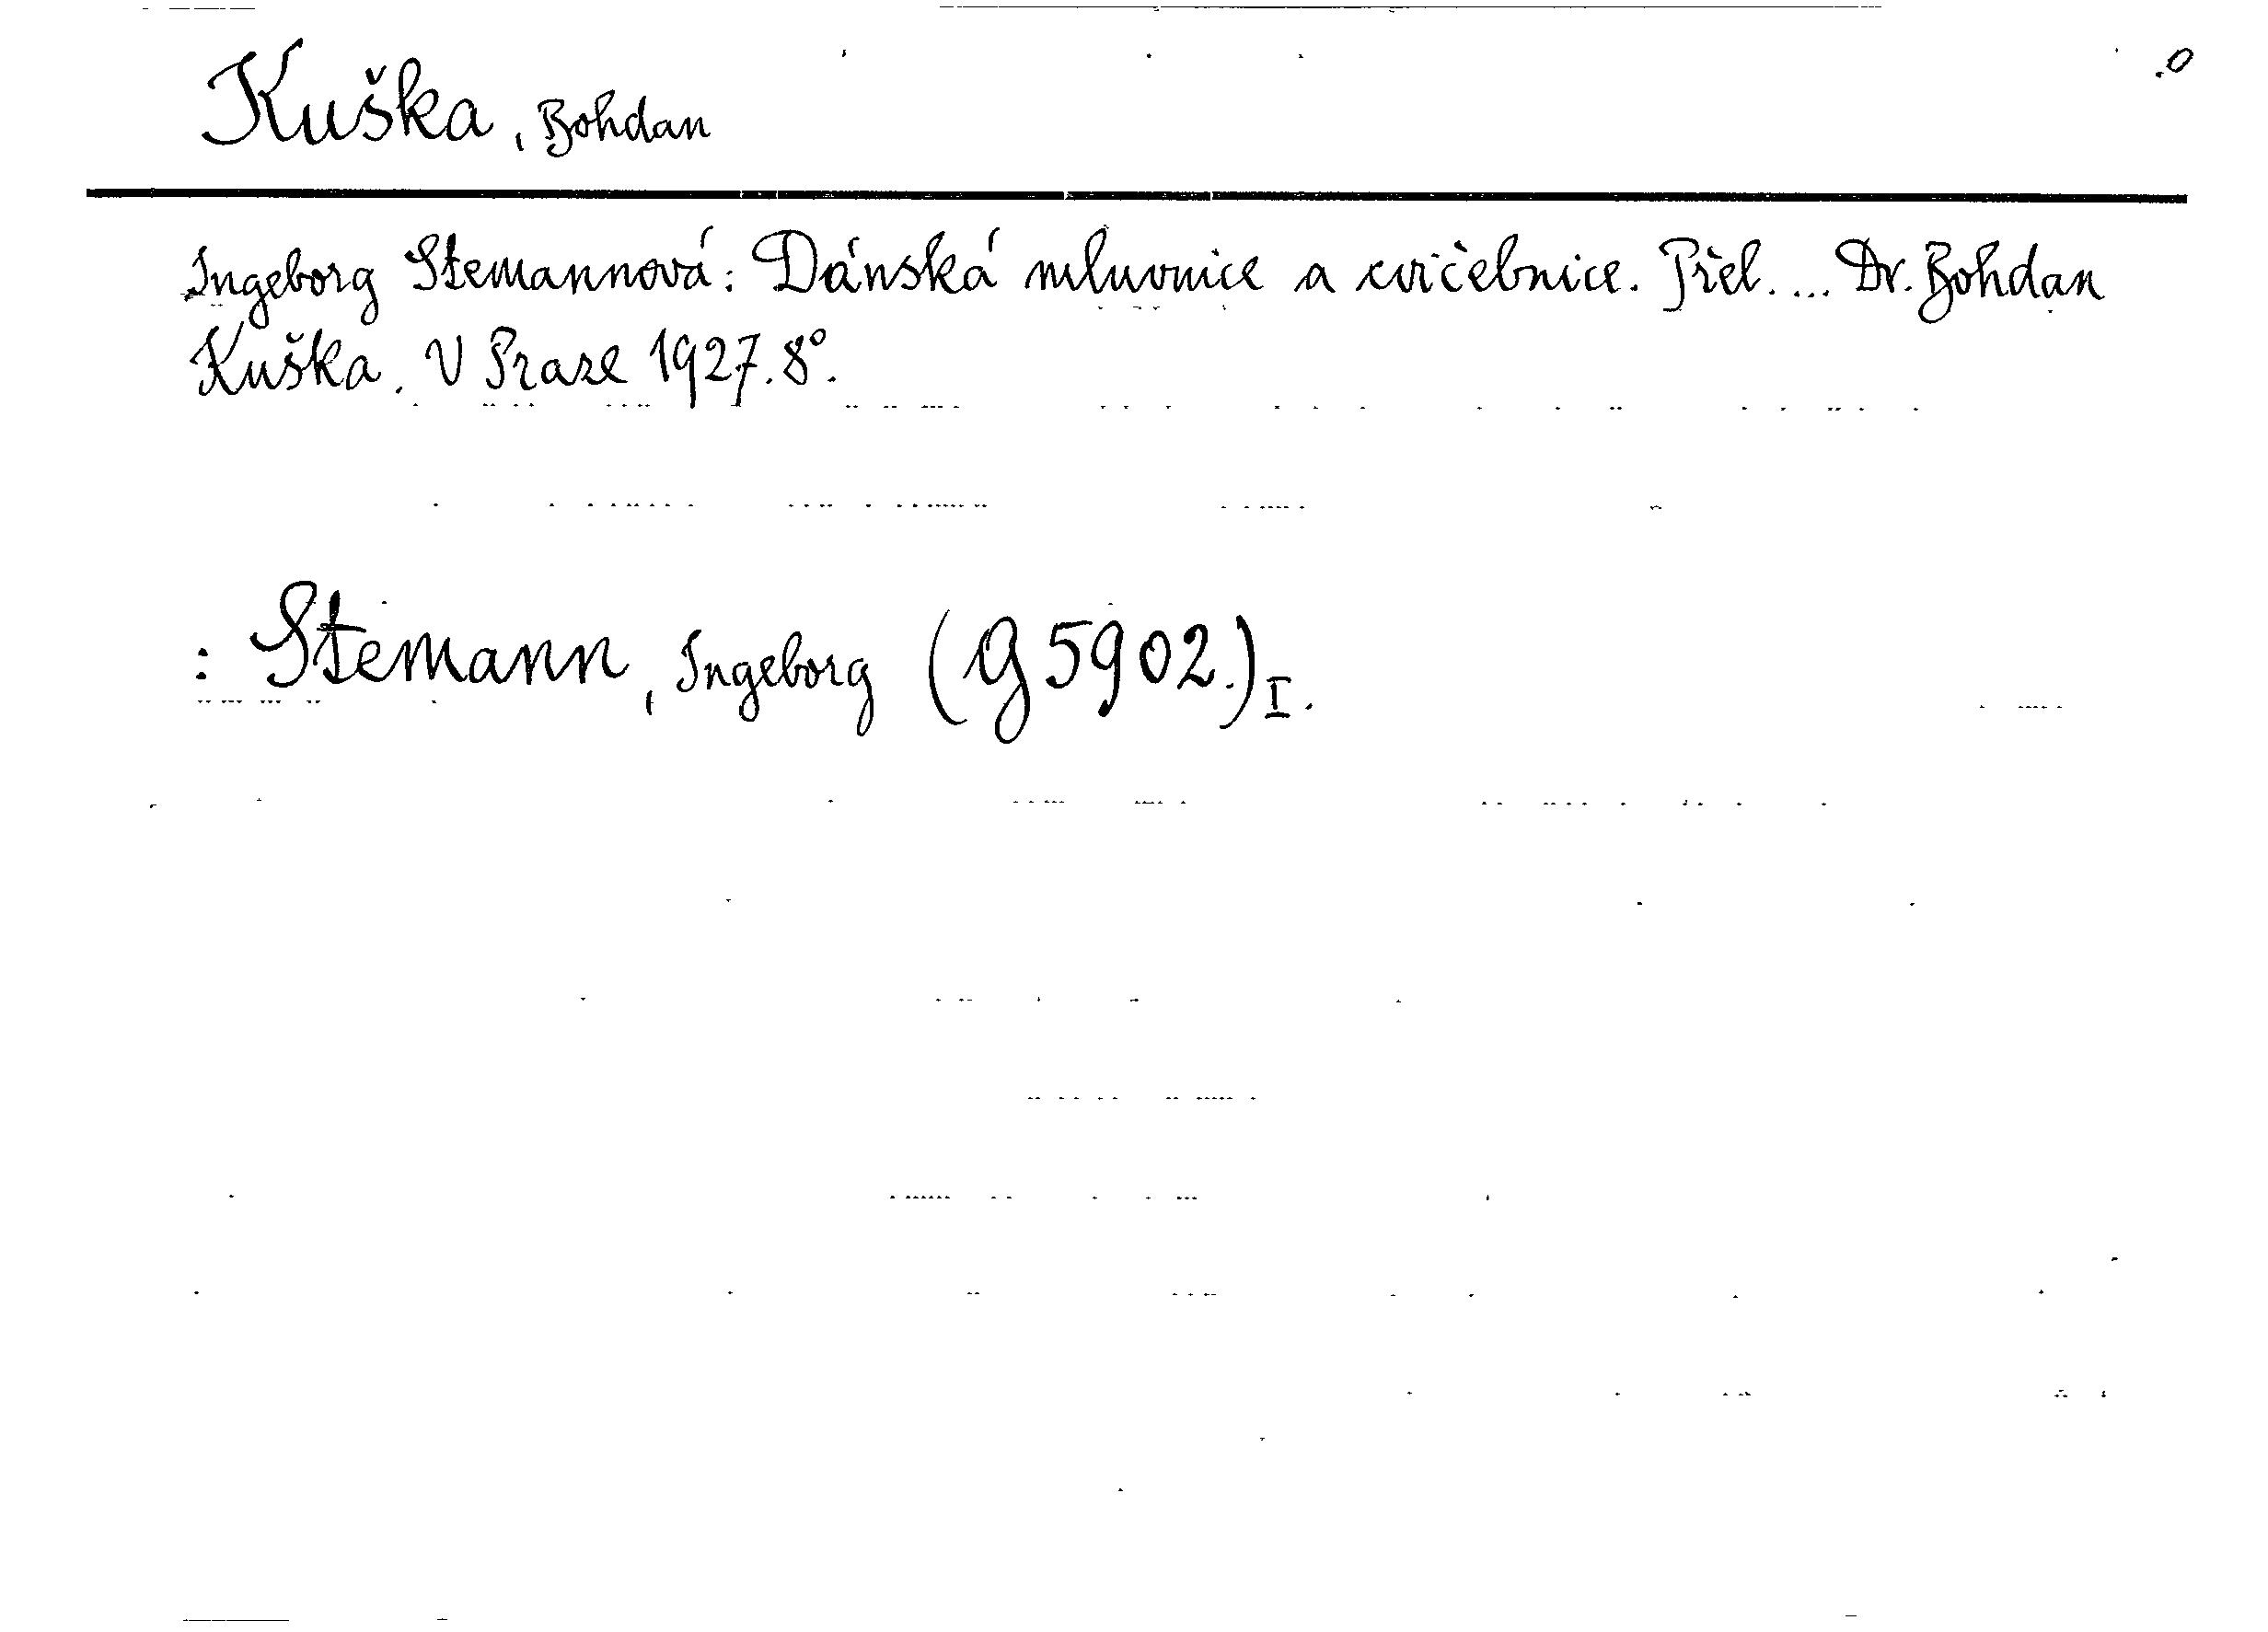 Kuška, Bohdan
Ingeborg Stemannová: Dánská mluvnice a cvičebnice. Přel. ... Dr. Bohdan
Kuška. V Praze 1927. 8°.
: Stemann, Ingeborg (G 5902.) I.